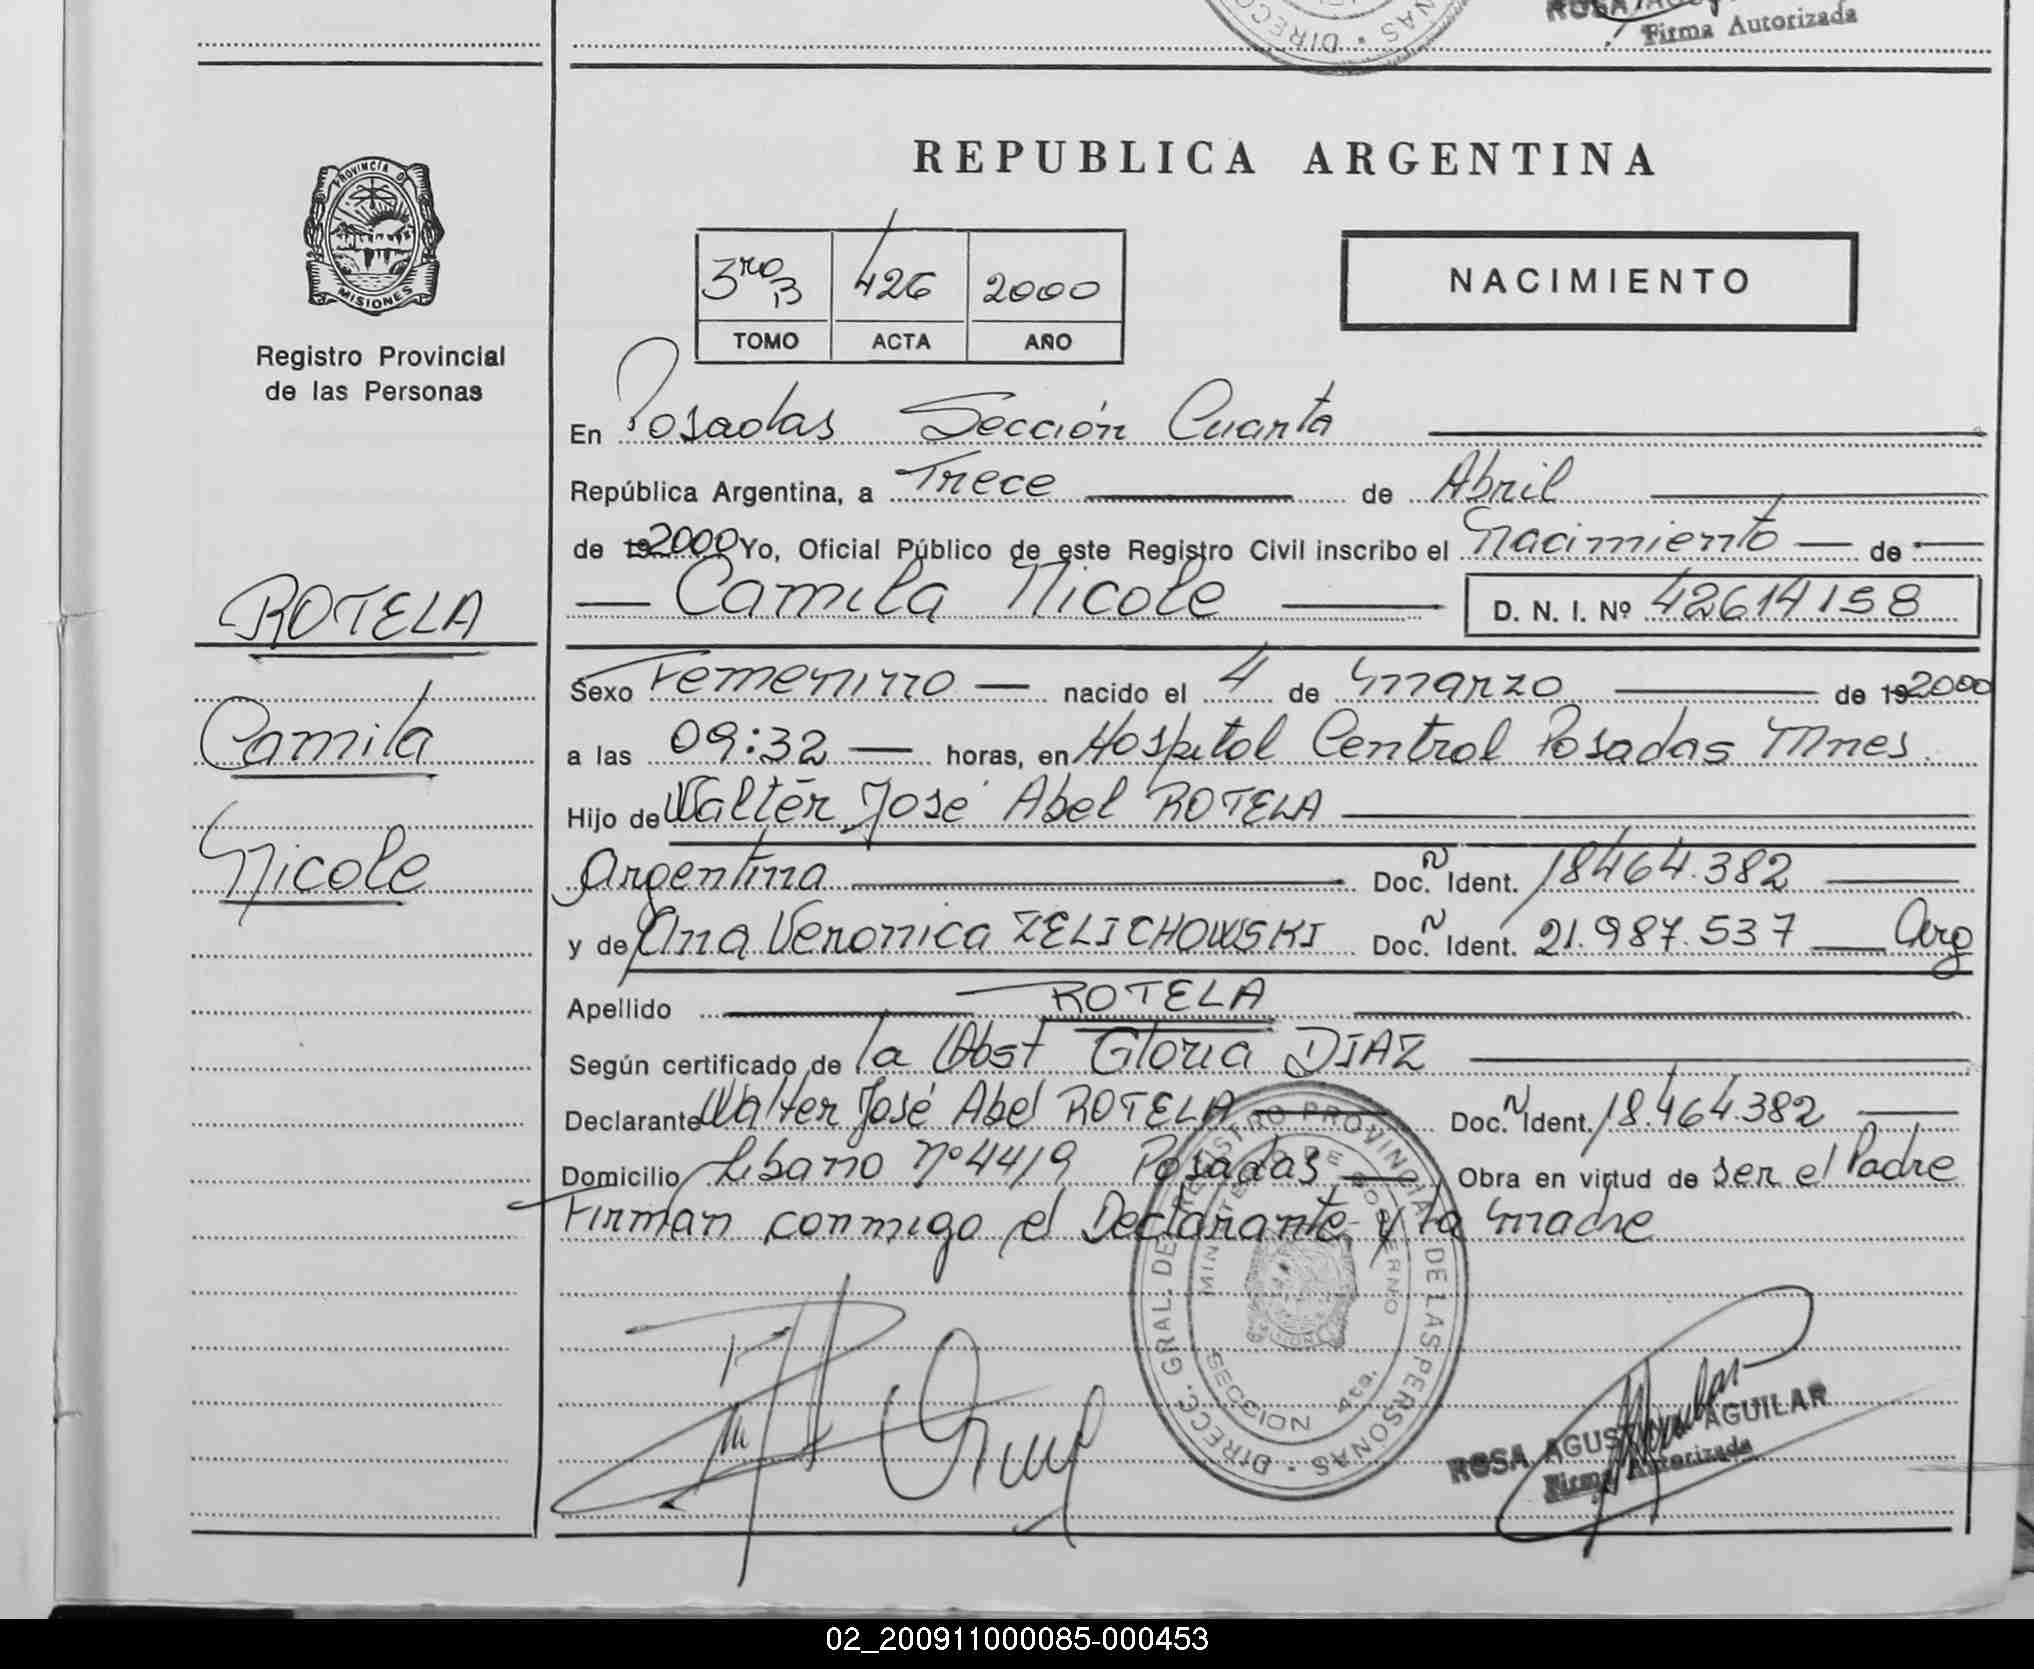 Firma Autorizada
PROVINCIA D
MISIONES
Registro Provincial
de las Personas
REPUBLICA ARGENTINA
3ro B 426 2000
TOMO ACTA AÑO
NACIMIENTO
En Posadas Sección Cuarta
República Argentina, a Trece de Abril
de 19 2000 Yo, Oficial Público de este Registro Civil inscribo el Nacimiento de
Camila Nicole D. N. I. Nº 42614158
ROTELA
Camila
Nicole
Sexo Femenino nacido el 4 de marzo de 19 2000
a las 09:32 horas, en Hospital Central Posadas Mnes.
Hijo de Walter José Abel ROTELA
Argentina Doc. N Ident. 18464.382
y de Ana Veronica ZELICHOWSKI Doc. N Ident. 21.987.537 Arg
Apellido ROTELA
Según certificado de la Obst Gloria DIAZ
Declarante Walter José Abel ROTELA Doc. N Ident. 18.464.382
Domicilio Libano nº 4419 Posadas Obra en virtud de ser el Padre
Firman conmigo el Declarante y la madre
DIRECC. GRAL. DE REGISTRO PROVINCIAL DE LAS PERSONAS
MINISTERIO DE GOBIERNO
SECCION 4ta.
ROSA AGUSTINA AGUILAR
Firma Autorizada
02_200911000085-000453